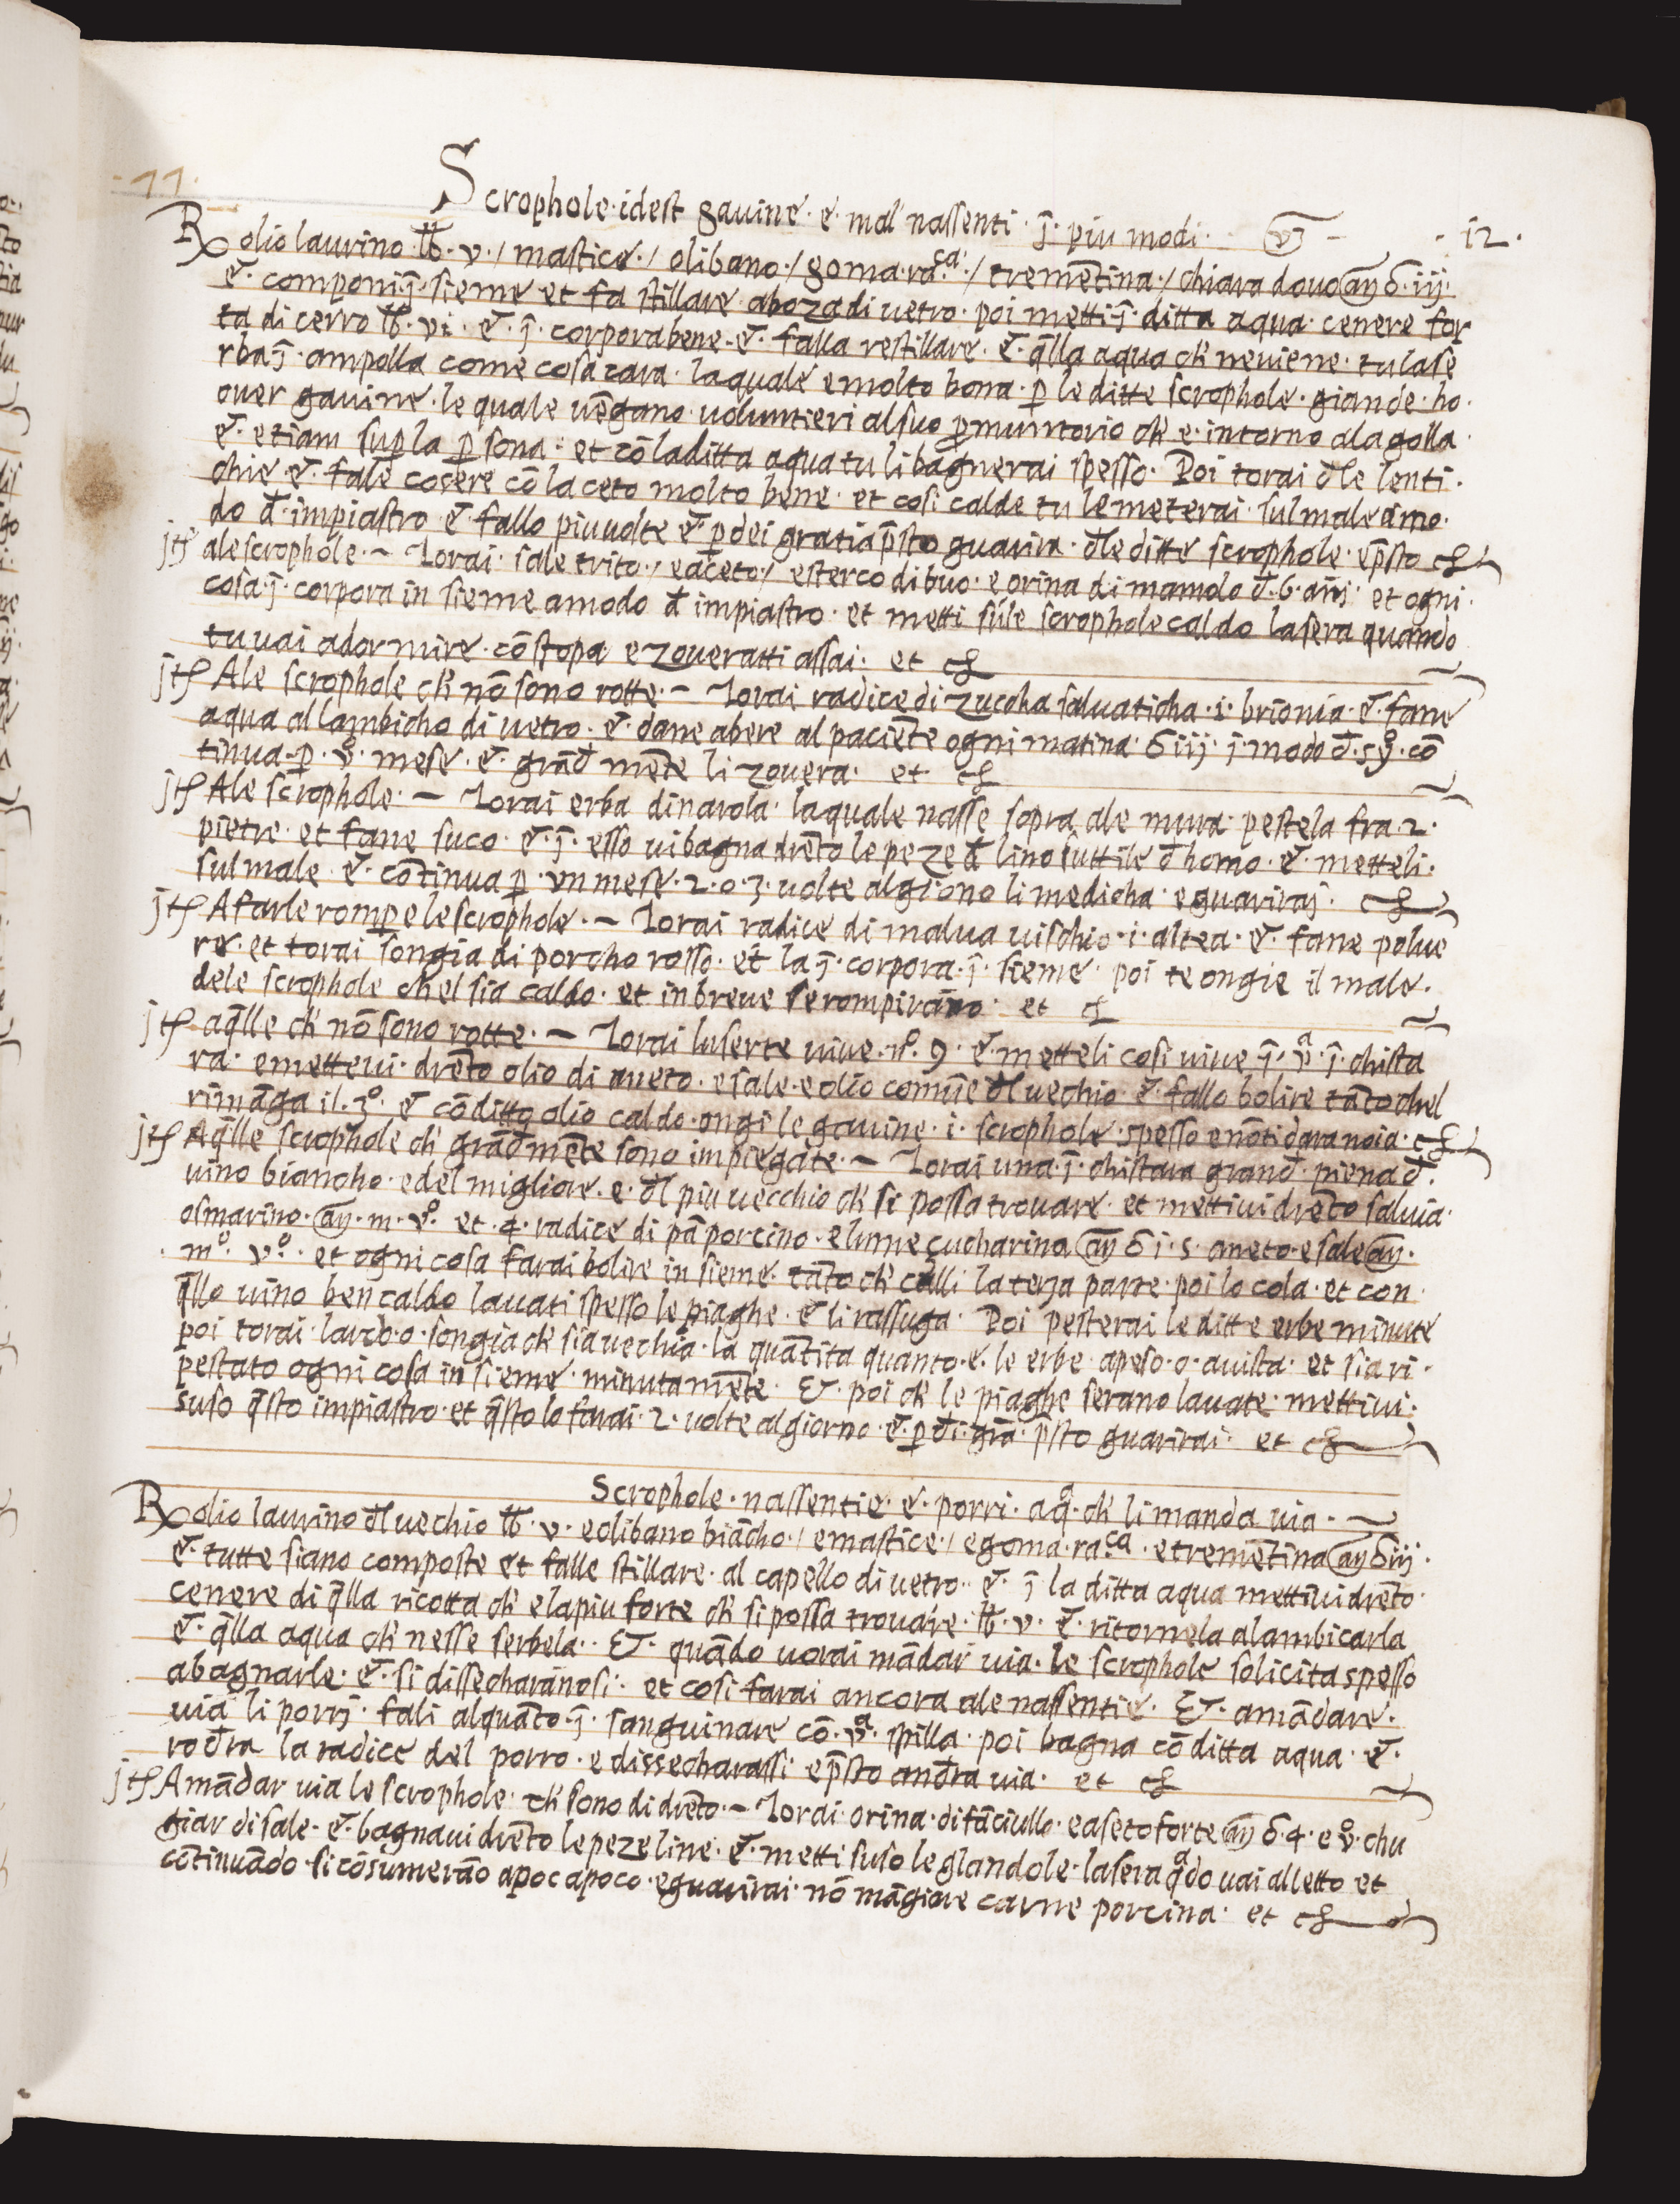 ·11·
Scrophole·idest gauine·e·mal nassenti·j̄·piu modi· vj - ·12·
℞ olio laurino·℔·v·/ mastice·/ olibano·/ goma·raᶜᵃ·/ trementina·/ chiara douo añ ℥·iij·
e·componi j̄·sieme et fa stillare·aboza di uetro·poi metti j̄·ditta aqua·cenere for
ta di cerro ℔·vi·e·j̄·corpora bene·e·falla restillare·e·q̄lla aqua ch' neuiene·tu lase
rba j̄·ampolla come cosa cara·laquale e molto bona·p̱ le ditte scrophole·giande·ho·
ouer gauine·le quale uēgano·uoluntieri al suo p̱muntorio ch' e·intorno ala golla·
e·etiam sup̱ la p̱sona·et cō la ditta aqua tu li bagnerai spesso·Poi torai d̄le lenti·
chie e·fale cocere cō laceto molto bene·et cosi calde tu le meterai·sul male amo·
do d̄·impiastro·e·fallo piu uolte e·p̱ dei gratia p̄sto guarira·d̄le ditte scrophole·ep̄sto
jt ale scrophole·~ Torai·sale trito·/ e aceto·/ esterco di buo·e orina di mamolo d̄·6·anj·et ogni·
cosa·j̄·corpora in sieme amodo d̄ impiastro·et metti sule scrophole caldo la sera quando
tu uai adormire·cō stopa e zoueratti assai·et
jt Ale scrophole ch' nō sono rotte·~ Torai radice di zuccha saluaticha·i·brionia·e·fane
aqua al lambicho di uetro·e·dane abere al paciēte ogni matina·℥ iij·j̄·modo d̄·syº·cō
tinua·p̱·vº·mese·e·grād̄ mēte li zouera·et
jt Ale scrophole·~ Torai erba dinarola·laquale nasse sopra ale mura·pestela fra·2·
pietre·et fane suco·e·j̄·esso ui bagna drēto le peze d̄ lino suttile d̄ homo·e·metteli·
sul male·e·cōtinua p̱·vn mese·2·o·3·uolte al giono li medicha·e guariraj·
jt A farle romp̱e le scrophole·~ Torai radice di malua uischio·i·altea·e·fane polue
re·et torai songia di porcho rosso·et la j̄·corpora·j̄·sieme·poi te ongie il male·
dele scrophole chel sia caldo·et in breue se rompirāno·et
jt aq̄lle ch' nō sono rotte·~ Torai luserte uiue·nº·9·e·metteli cosi uiue j̄·vᵃ·j̄·chista
ra·emetteui·drēto olio di aneto·e sale·e olio comūe d̄l uechio·e·fallo bolire tāto chel
rimāga il·3º·e cō ditto olio caldo·ongi le gauine·i·scrophole·spesso e nōti dara noia·
jt Aq̄lle scrophole ch' grād̄mēte sono impiegate·~ Torai una·j̄·chistara grand̄·piena d̄·
uino biancho·e del migliore·e·d̄l piu uecchio ch' si possa trouare·et mettiui drēto saluia·
osmarino·añ·m·vº·et·4·radice di pā porcino·e lume zucharina añ ℥ j·s·aneto·e sale añ·
mº·vº·et ogni cosa farai bolire in sieme·tāto ch' calli la terza parte·poi lo cola·et con·
q̄llo uino ben caldo lauati spesso le piaghe·e li rassuga·Poi pesterai le ditte erbe minute
poi torai·lardo·o·songia ch' sia uechia·la quātita quanto·e·le erbe·apeso·o·auista·et sia ri·
pestato ogni cosa in sieme·minutamēte·E·poi ch' le piaghe serano lauate·mettiui·
suso q̄sto impiastro·et q̄sto lo farai·2·uolte al giorno·e·p̱ d̄i·grā·p̄sto guarirai·et
Scrophole·nassentie·e·porri·aqᵃ·ch' li manda uia·~
℞ olio laurino d̄l uechio ℔·v·e olibano biācho·/ e mastice·/ e goma·raᶜᵃ·e tremētina añ ℥ iij·
e·tutte siano composte et falle stillare·al capello di uetro·e·j̄ la ditta aqua mettiui drēto·
cenere di q̄lla ricotta ch' e la piu forte ch' si possa trouare·℔·v·e·ritornela alambicarla
e·q̄lla aqua ch' nesse serbela·E·quādo uorai mādar uia·le scrophole solicita spesso
abagnarle·e·si dissecharānosi·et cosi farai ancora ale nassentie·E·amādare·
uia li porrj·fali alquāto·j̄·sanguinare cō·vᵃ·spilla·poi bagna cō ditta aqua·e·
rod̄ra la radice del porro·e dissecharassi·ep̄sto and̄ra uia·et
jt Amādar uia le scrophole·ch' sono di drēto·~ Torai·orina·di fāciullo·e aseto forte añ ℥·4·e vº·chu
giar di sale·e·bagnaui drēto le peze line·e·metti suso le glandole·la sera qᵃdo uai alletto et
cōtinuādo·si cōsumerāo apoc apoco·e guarirai·nō māgiare carne porcina·et